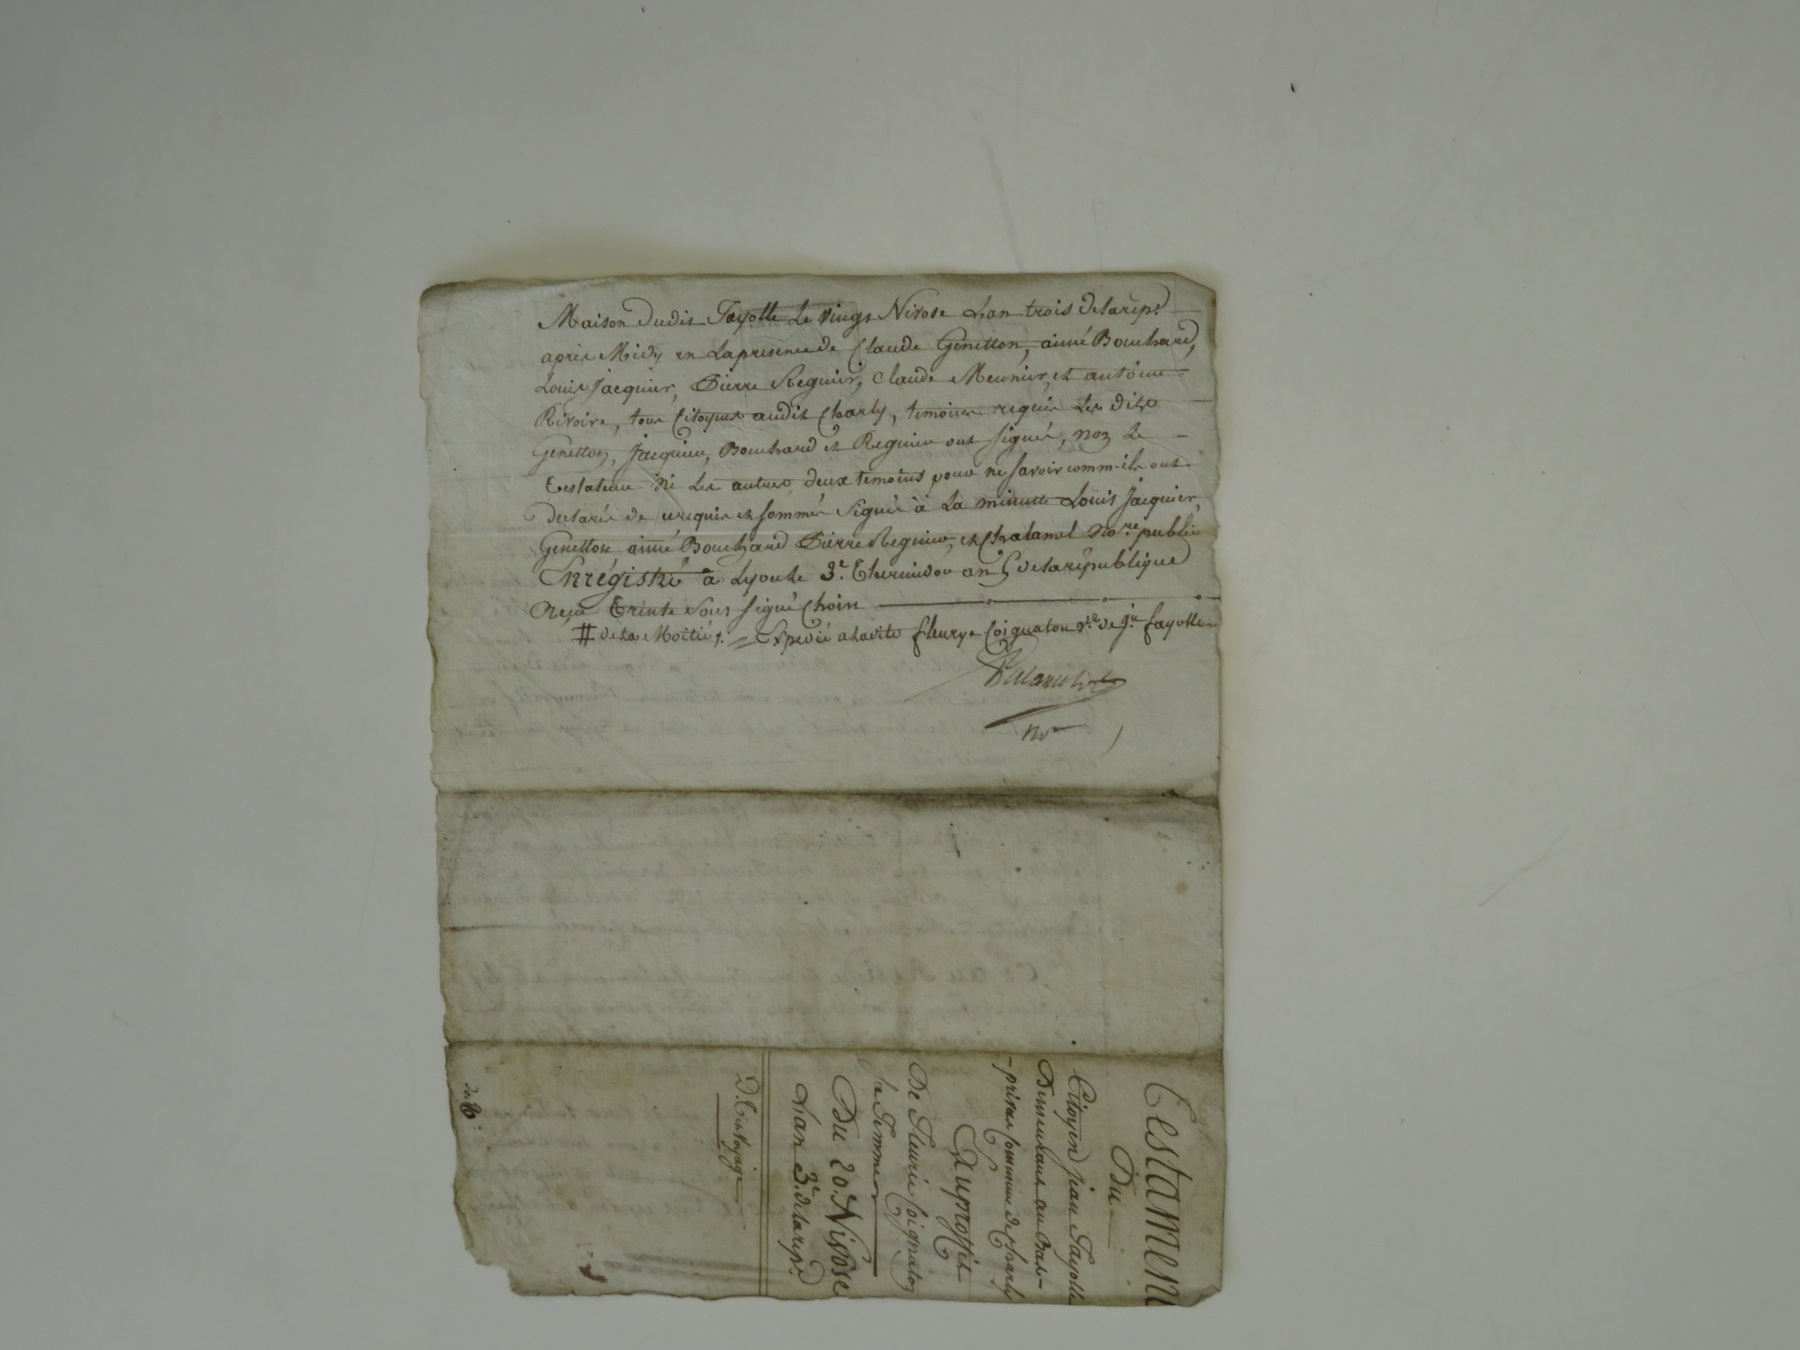 Maison dudit Fayolle Le vingt Nivose Lan trois delarep.e
après Midy en Lapresence de Claude Genetton, aimé Bouchard,
Louis jacquier, Pierre Reguier, Claude Meunier, et antoine
Rivoire, tous Citoyens audit Charly, temoins requis Les dits
Genetton, jacquier, Bouchard et Reguier ont signé, non Le
Testateur ni Les autres deux temoins pour ne savoir comm-ils ont
declaré de ce requis et sommés signé à La minutte Loüis jacquier,
Genetton aimé Bouchard Pierre Reguier, et Chalamel no.re public
Enrégistré à Lyon le 3.e Thermidor an 5 delarépublique
Reçu Trente sous signé Choin
# de La Moitié ·/. = Expedié a Ladite fleurye Coignaton v.ve de j.n fayolle
Chalamel
no.re
Testament
Du
Citoyen jean Fayolle
Demeurant au Bas-
-privas Commune de Charly
Au proffit
De Fleurie Coignaton
sa Femme
Du 20. Nivose
Lan 3.e delarep.e
D. Ct. Voyage